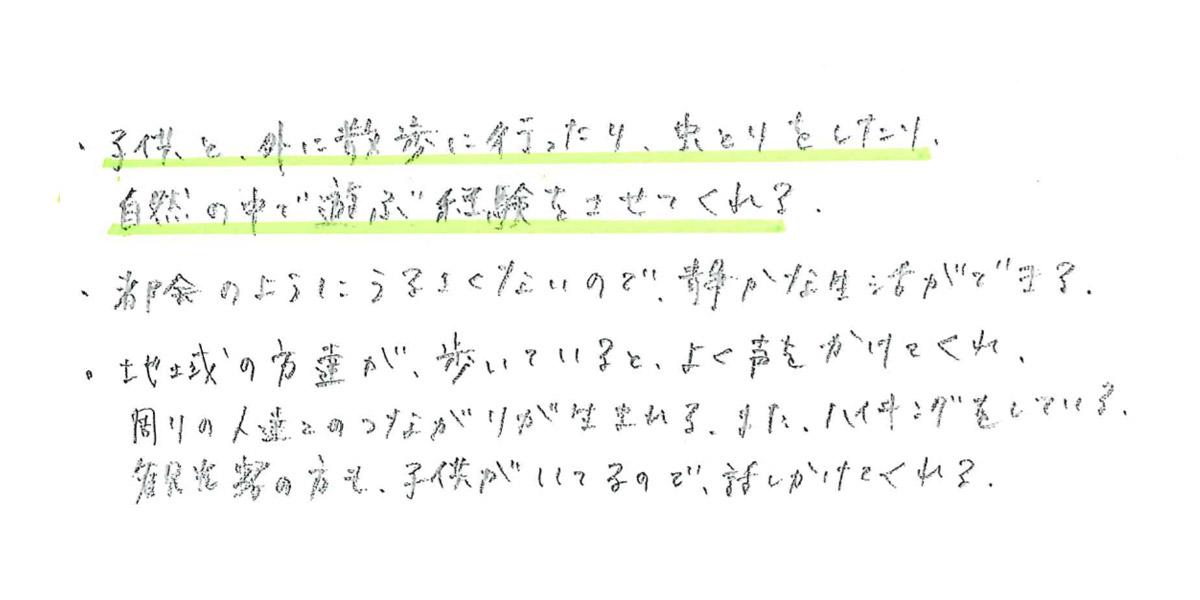 ・子供と、外に散歩に行ったり、虫とりをしたり、
自然の中で遊ぶ経験をさせてくれる.
・都会のようにうるさくないので、静かな生活ができる.
・地域の方達が、歩いていると、よく声をかけてくれ、
周りの人達とのつながりが生まれる.また、ハイキングをしている、
観光客の方も、子供が いてるので、話しかけてくれる.